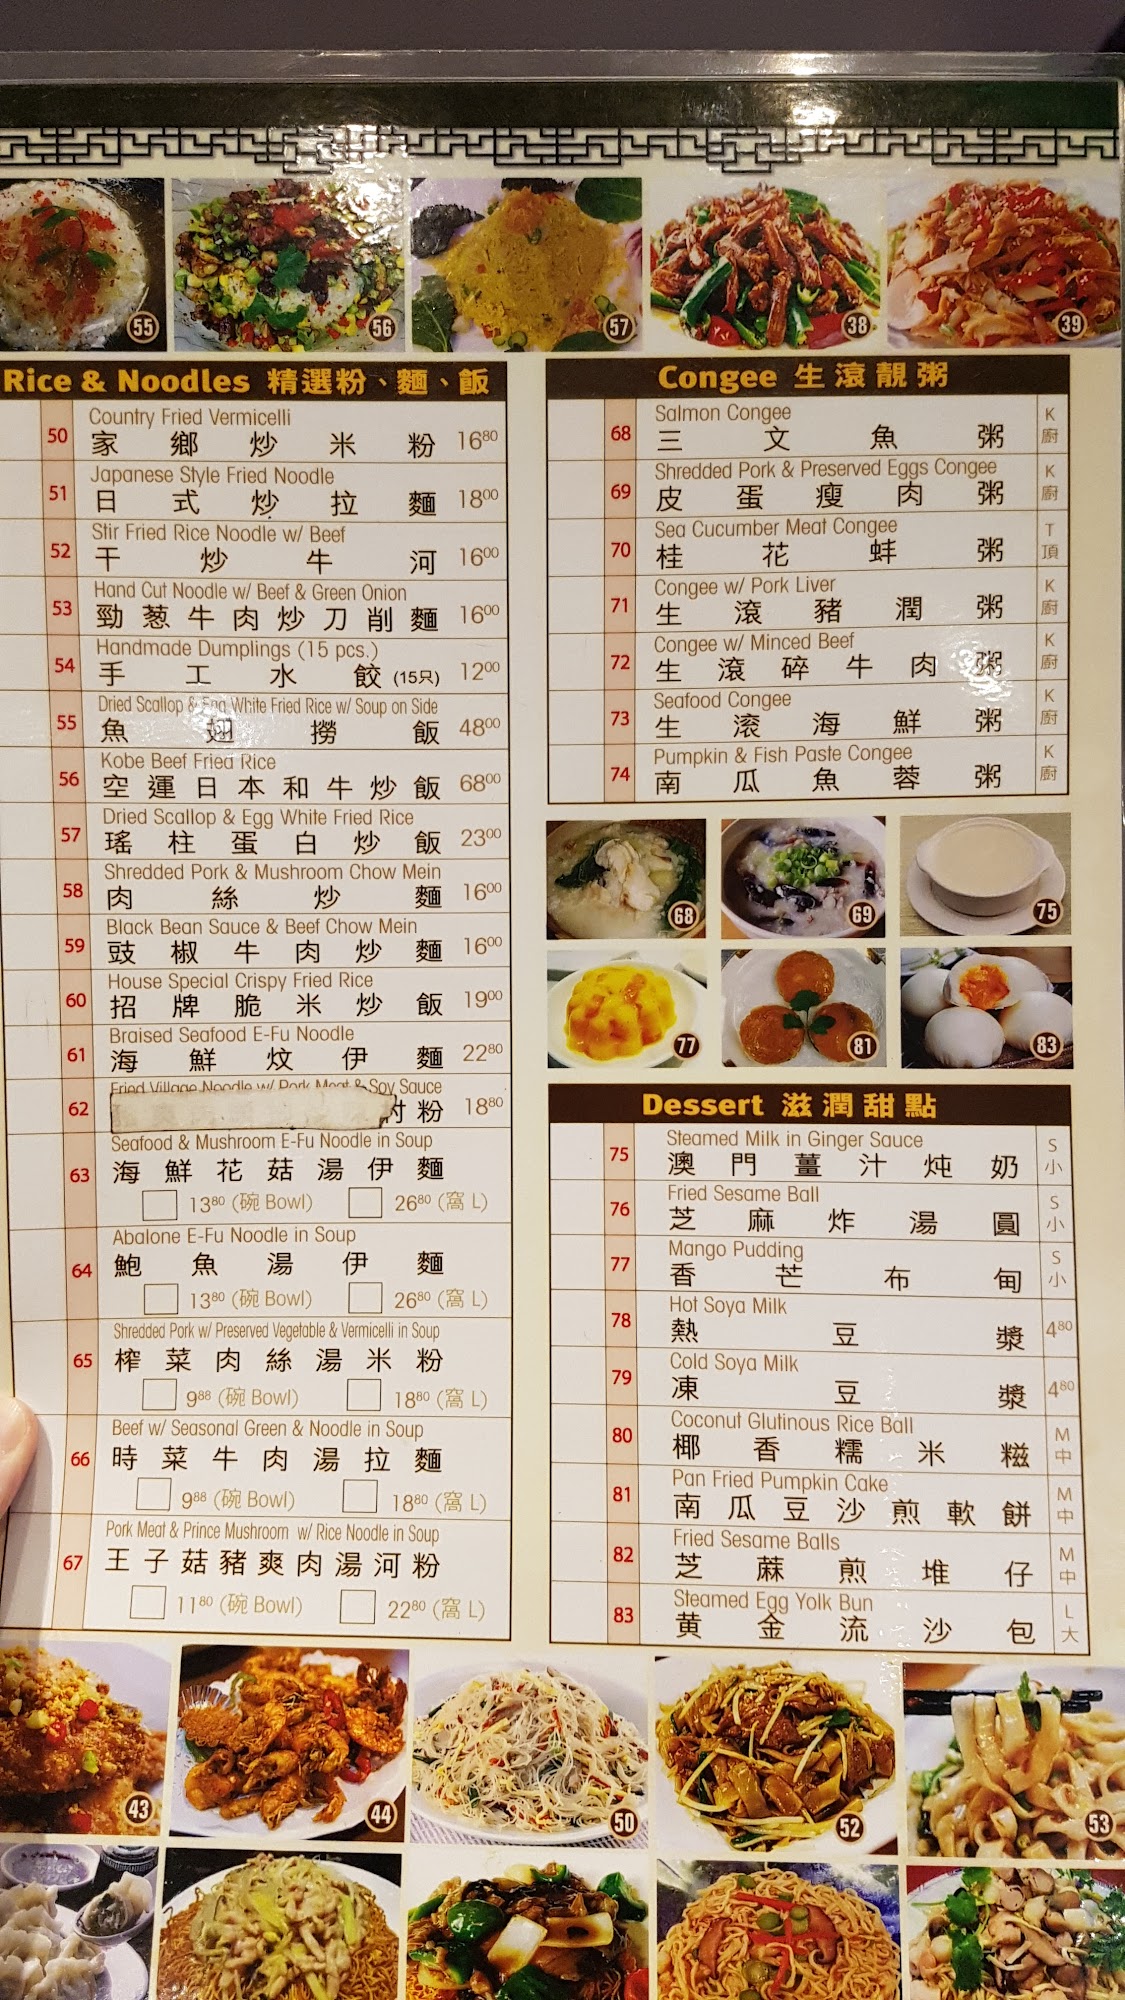 55
56
57
38
39
Rice & Noodles 精選粉、麵、飯
50 Country Fried Vermicelli
家鄉炒米粉 16⁸⁰
51 Japanese Style Fried Noodle
日式炒拉麵 18⁰⁰
52 Stir Fried Rice Noodle w/ Beef
干炒牛河 16⁰⁰
53 Hand Cut Noodle w/ Beef & Green Onion
勁葱牛肉炒刀削麵 16⁰⁰
54 Handmade Dumplings (15 pcs.)
手工水餃 (15只) 12⁰⁰
55 Dried Scallop & Egg White Fried Rice w/ Soup on Side
魚翅撈飯 48⁰⁰
56 Kobe Beef Fried Rice
空運日本和牛炒飯 68⁰⁰
57 Dried Scallop & Egg White Fried Rice
瑤柱蛋白炒飯 23⁰⁰
58 Shredded Pork & Mushroom Chow Mein
肉絲炒麵 16⁰⁰
59 Black Bean Sauce & Beef Chow Mein
豉椒牛肉炒麵 16⁰⁰
60 House Special Crispy Fried Rice
招牌脆米炒飯 19⁰⁰
61 Braised Seafood E-Fu Noodle
海鮮炆伊麵 22⁸⁰
62 Fried Village Noodle w/ Pork Meat & Soy Sauce
粉 18⁸⁰
63 Seafood & Mushroom E-Fu Noodle in Soup
海鮮花菇湯伊麵
13⁸⁰ (碗 Bowl) 26⁸⁰ (窩 L)
64 Abalone E-Fu Noodle in Soup
鮑魚湯伊麵
13⁸⁰ (碗 Bowl) 26⁸⁰ (窩 L)
65 Shredded Pork w/ Preserved Vegetable & Vermicelli in Soup
榨菜肉絲湯米粉
9⁸⁸ (碗 Bowl) 18⁸⁰ (窩 L)
66 Beef w/ Seasonal Green & Noodle in Soup
時菜牛肉湯拉麵
9⁸⁸ (碗 Bowl) 18⁸⁰ (窩 L)
67 Pork Meat & Prince Mushroom w/ Rice Noodle in Soup
王子菇豬爽肉湯河粉
11⁸⁰ (碗 Bowl) 22⁸⁰ (窩 L)
Congee 生滾靚粥
68 Salmon Congee
三文魚粥 K廚
69 Shredded Pork & Preserved Eggs Congee
皮蛋瘦肉粥 K廚
70 Sea Cucumber Meat Congee
桂花蚌粥 T頂
71 Congee w/ Pork Liver
生滾豬潤粥 K廚
72 Congee w/ Minced Beef
生滾碎牛肉粥 K廚
73 Seafood Congee
生滾海鮮粥 K廚
74 Pumpkin & Fish Paste Congee
南瓜魚蓉粥 K廚
68
69
75
77
81
83
Dessert 滋潤甜點
75 Steamed Milk in Ginger Sauce
澳門薑汁炖奶 S小
76 Fried Sesame Ball
芝麻炸湯圓 S小
77 Mango Pudding
香芒布甸 S小
78 Hot Soya Milk
熱豆漿 4⁸⁰
79 Cold Soya Milk
凍豆漿 4⁸⁰
80 Coconut Glutinous Rice Ball
椰香糯米糍 M中
81 Pan Fried Pumpkin Cake
南瓜豆沙煎軟餅 M中
82 Fried Sesame Balls
芝蔴煎堆仔 M中
83 Steamed Egg Yolk Bun
黄金流沙包 L大
43
44
50
52
53